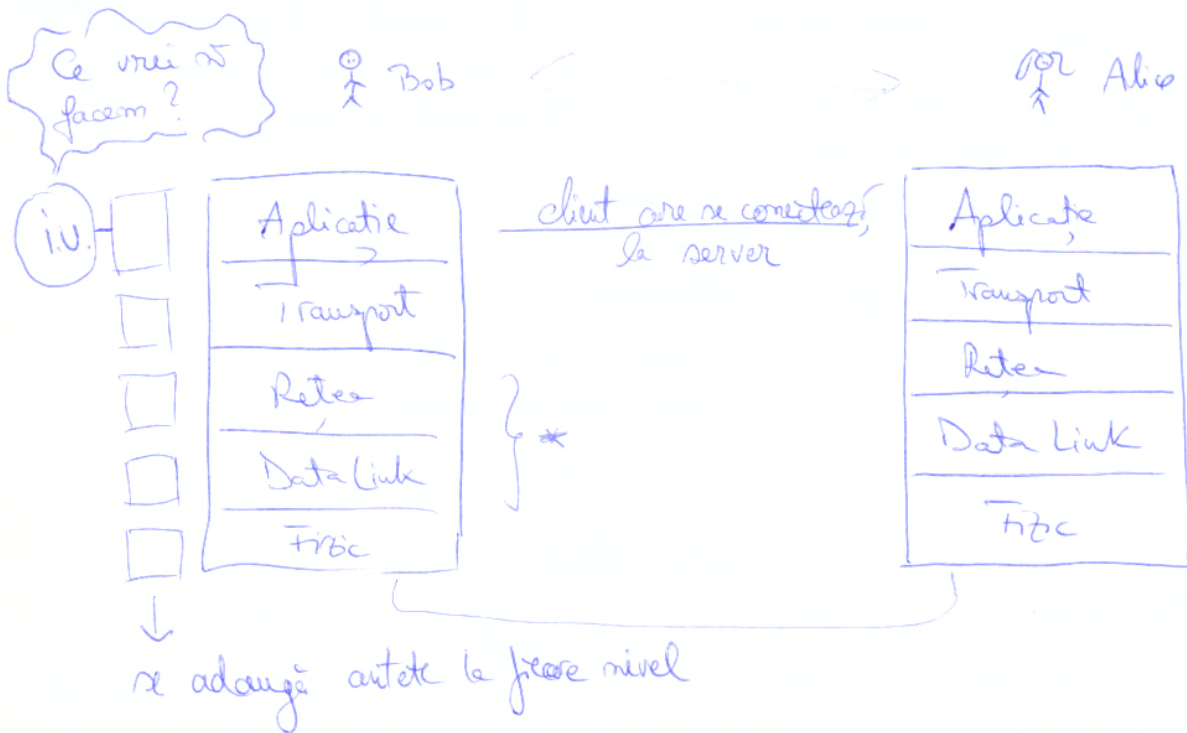 Ce vrei să
facem?
Bob
Alice
i.v.
Aplicație
Transport
Rețea
Data Link
Fizic
client care se conectează
la server
*
Aplicație
Transport
Rețea
Data Link
Fizic
se adaugă antete la fiecare nivel